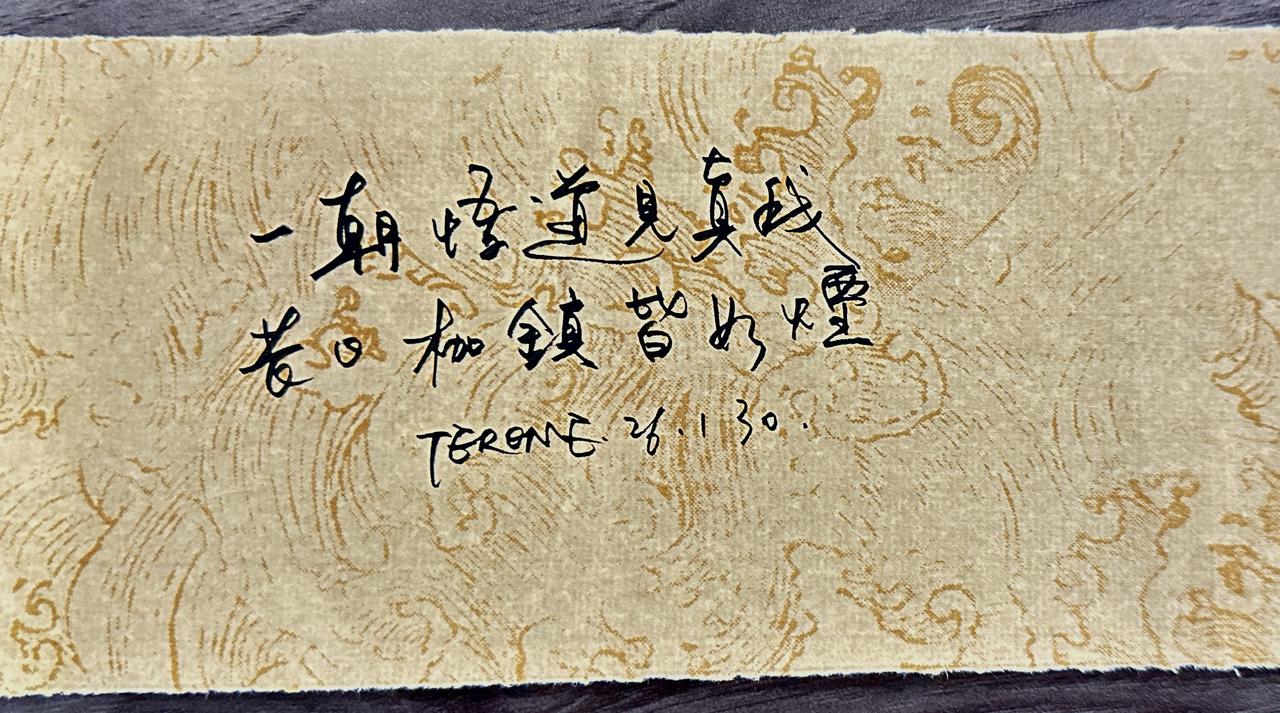 一朝悟道見真我
昔日枷鎮皆如煙
TEROME. 26.1.30.